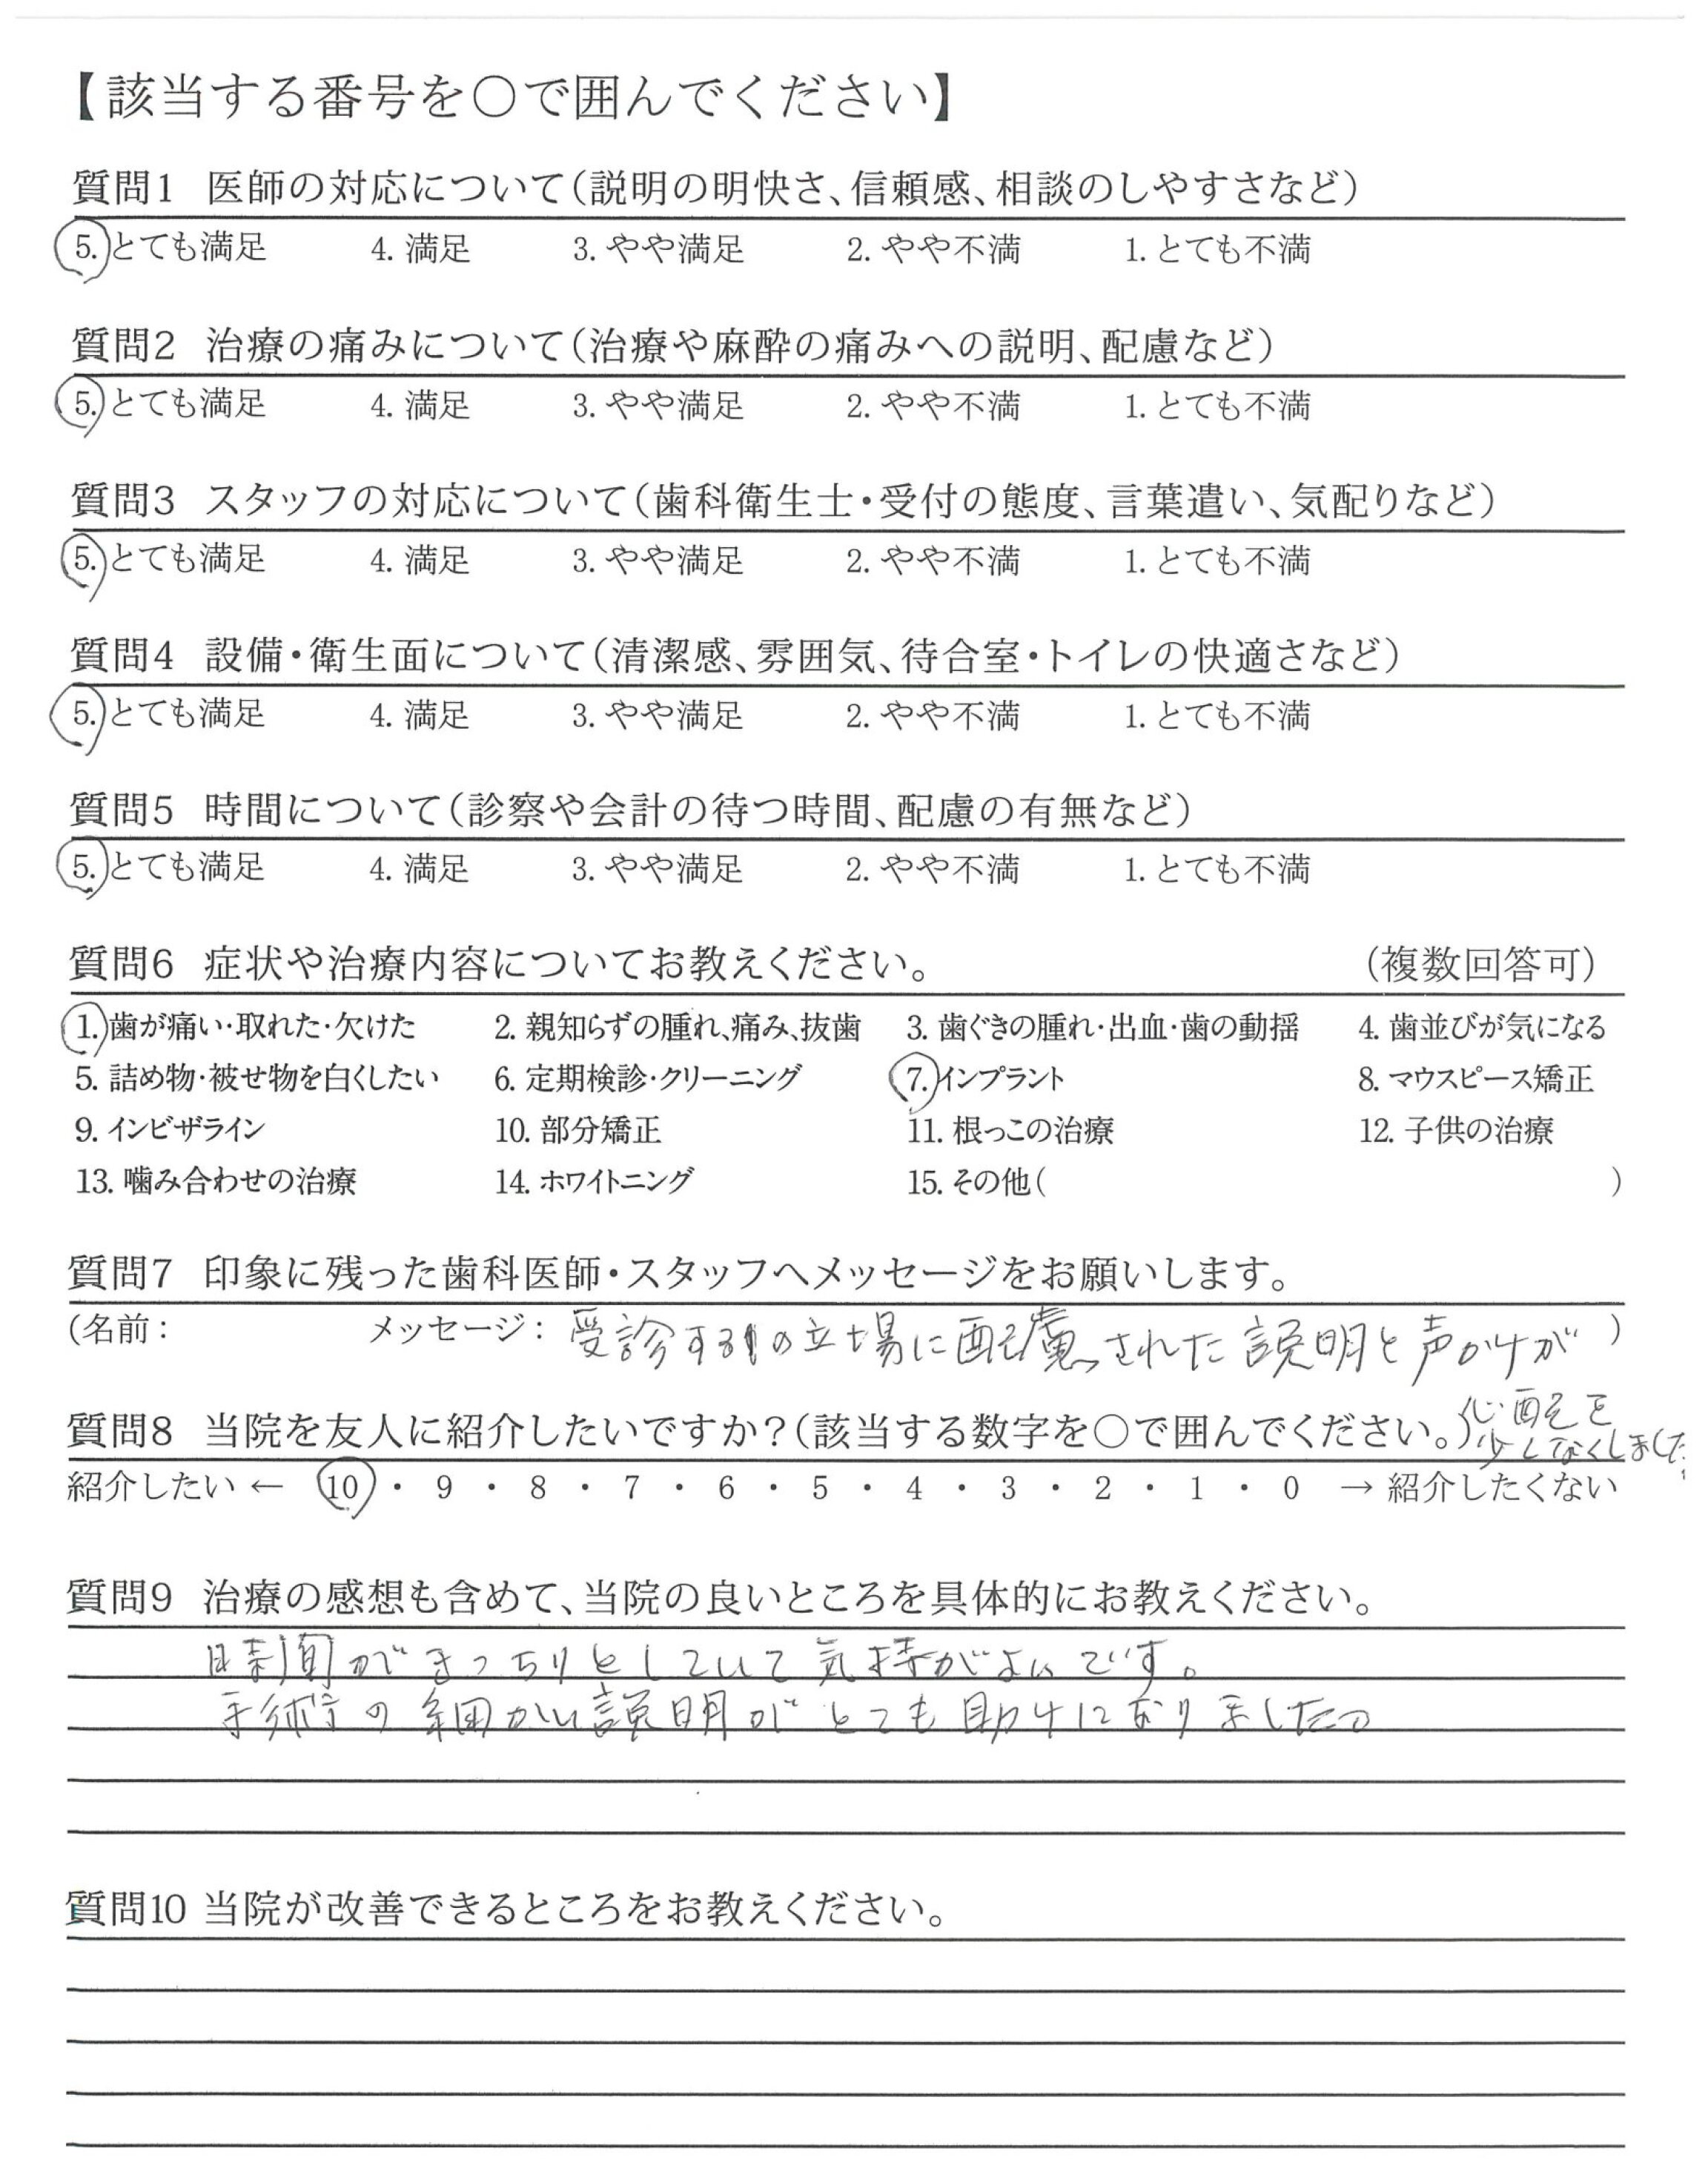 【該当する番号を○で囲んでください】
質問1 医師の対応について(説明の明快さ、信頼感、相談のしやすさなど)
5. とても満足 4. 満足 3. やや満足 2. やや不満 1. とても不満
質問2 治療の痛みについて(治療や麻酔の痛みへの説明、配慮など)
5. とても満足 4. 満足 3. やや満足 2. やや不満 1. とても不満
質問3 スタッフの対応について(歯科衛生士・受付の態度、言葉遣い、気配りなど)
5. とても満足 4. 満足 3. やや満足 2. やや不満 1. とても不満
質問4 設備・衛生面について(清潔感、雰囲気、待合室・トイレの快適さなど)
5. とても満足 4. 満足 3. やや満足 2. やや不満 1. とても不満
質問5 時間について(診察や会計の待つ時間、配慮の有無など)
5. とても満足 4. 満足 3. やや満足 2. やや不満 1. とても不満
質問6 症状や治療内容についてお教えください。 (複数回答可)
1. 歯が痛い・取れた・欠けた 2. 親知らずの腫れ、痛み、抜歯 3. 歯ぐきの腫れ・出血・歯の動揺 4. 歯並びが気になる
5. 詰め物・被せ物を白くしたい 6. 定期検診・クリーニング 7. インプラント 8. マウスピース矯正
9. インビザライン 10. 部分矯正 11. 根っこの治療 12. 子供の治療
13. 噛み合わせの治療 14. ホワイトニング 15. その他( )
質問7 印象に残った歯科医師・スタッフへメッセージをお願いします。
(名前: メッセージ: 受診する の立場に配慮された説明と声かけが )
心配を
少しなくしました
質問8 当院を友人に紹介したいですか?(該当する数字を○で囲んでください。)
紹介したい ← 10 ・ 9 ・ 8 ・ 7 ・ 6 ・ 5 ・ 4 ・ 3 ・ 2 ・ 1 ・ 0 → 紹介したくない
質問9 治療の感想も含めて、当院の良いところを具体的にお教えください。
時間がきっちりとしていて気持がよいです。
手術の細かい説明がとても助けになりました。
質問10 当院が改善できるところをお教えください。